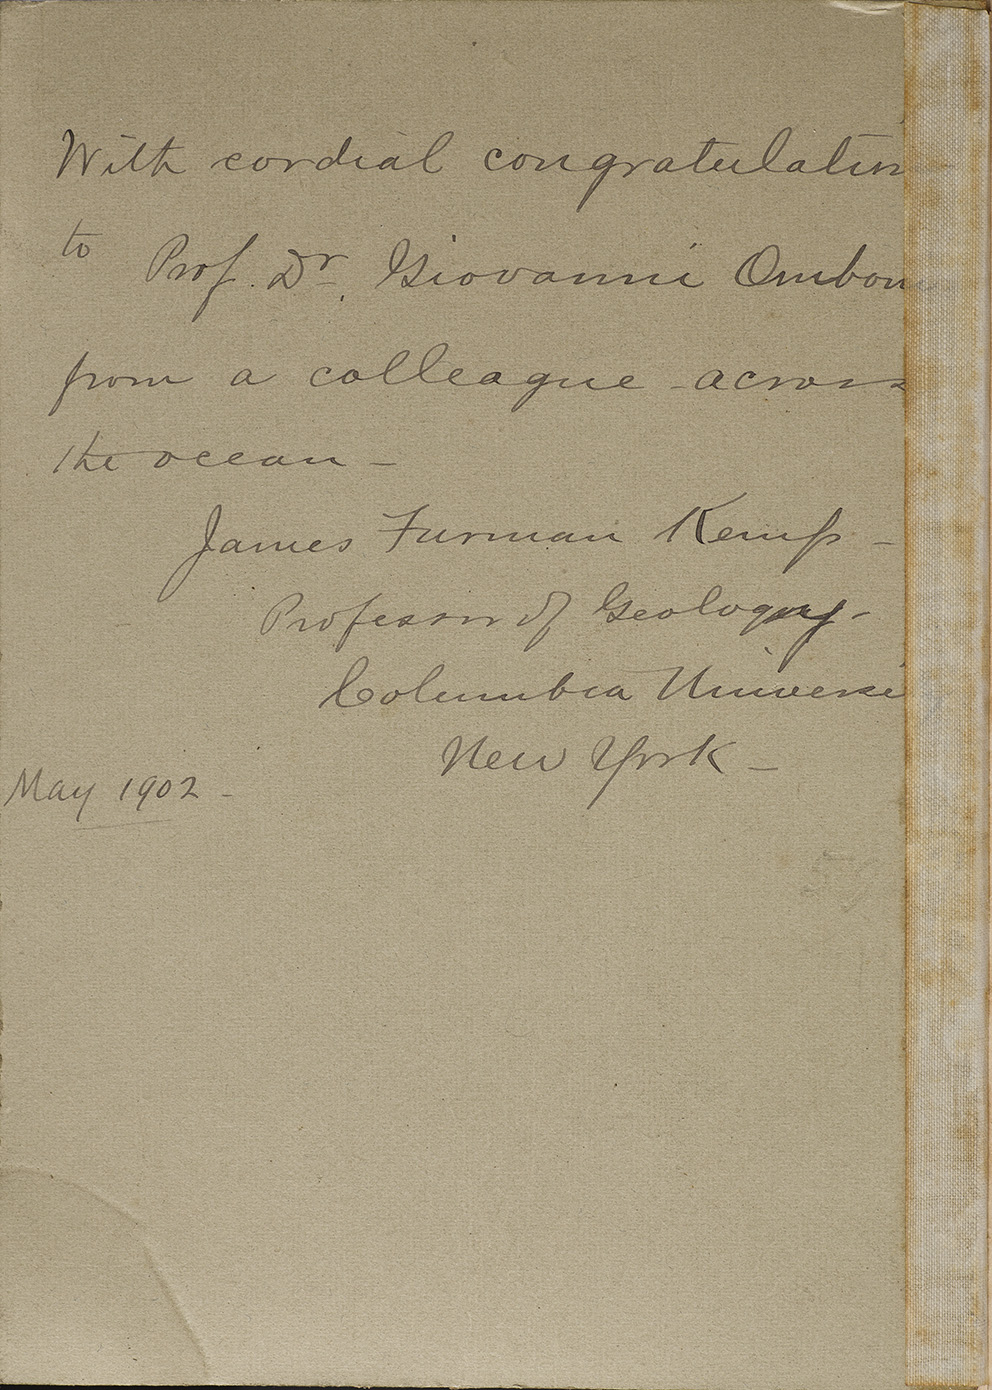 With cordial congratulation
to Prof. Dr. Giovanni Omboni
from a colleague across
the ocean –
James Furman Kemp –
Professor of Geology –
Columbia Universi
New York –
May 1902 –